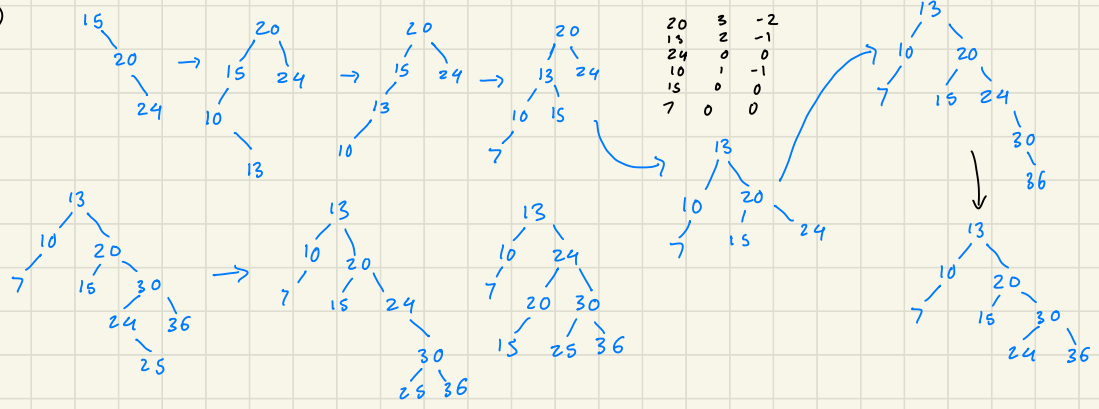 )
15
20
24
→
20
15 24
10
13
→
20
15 24
13
10
→
20
13 24
10 15
7
20 3 -2
15 2 -1
24 0 0
10 1 -1
15 0 0
7 0 0
13
10 20
7 15 24
13
10 20
7 15 24
30
36
13
10 20
7 15 30
24 36
13
10 20
7 15 30
24 36
25
→
13
10 20
7 15 24
30
25 36
13
10 24
7 20 30
15 25 36